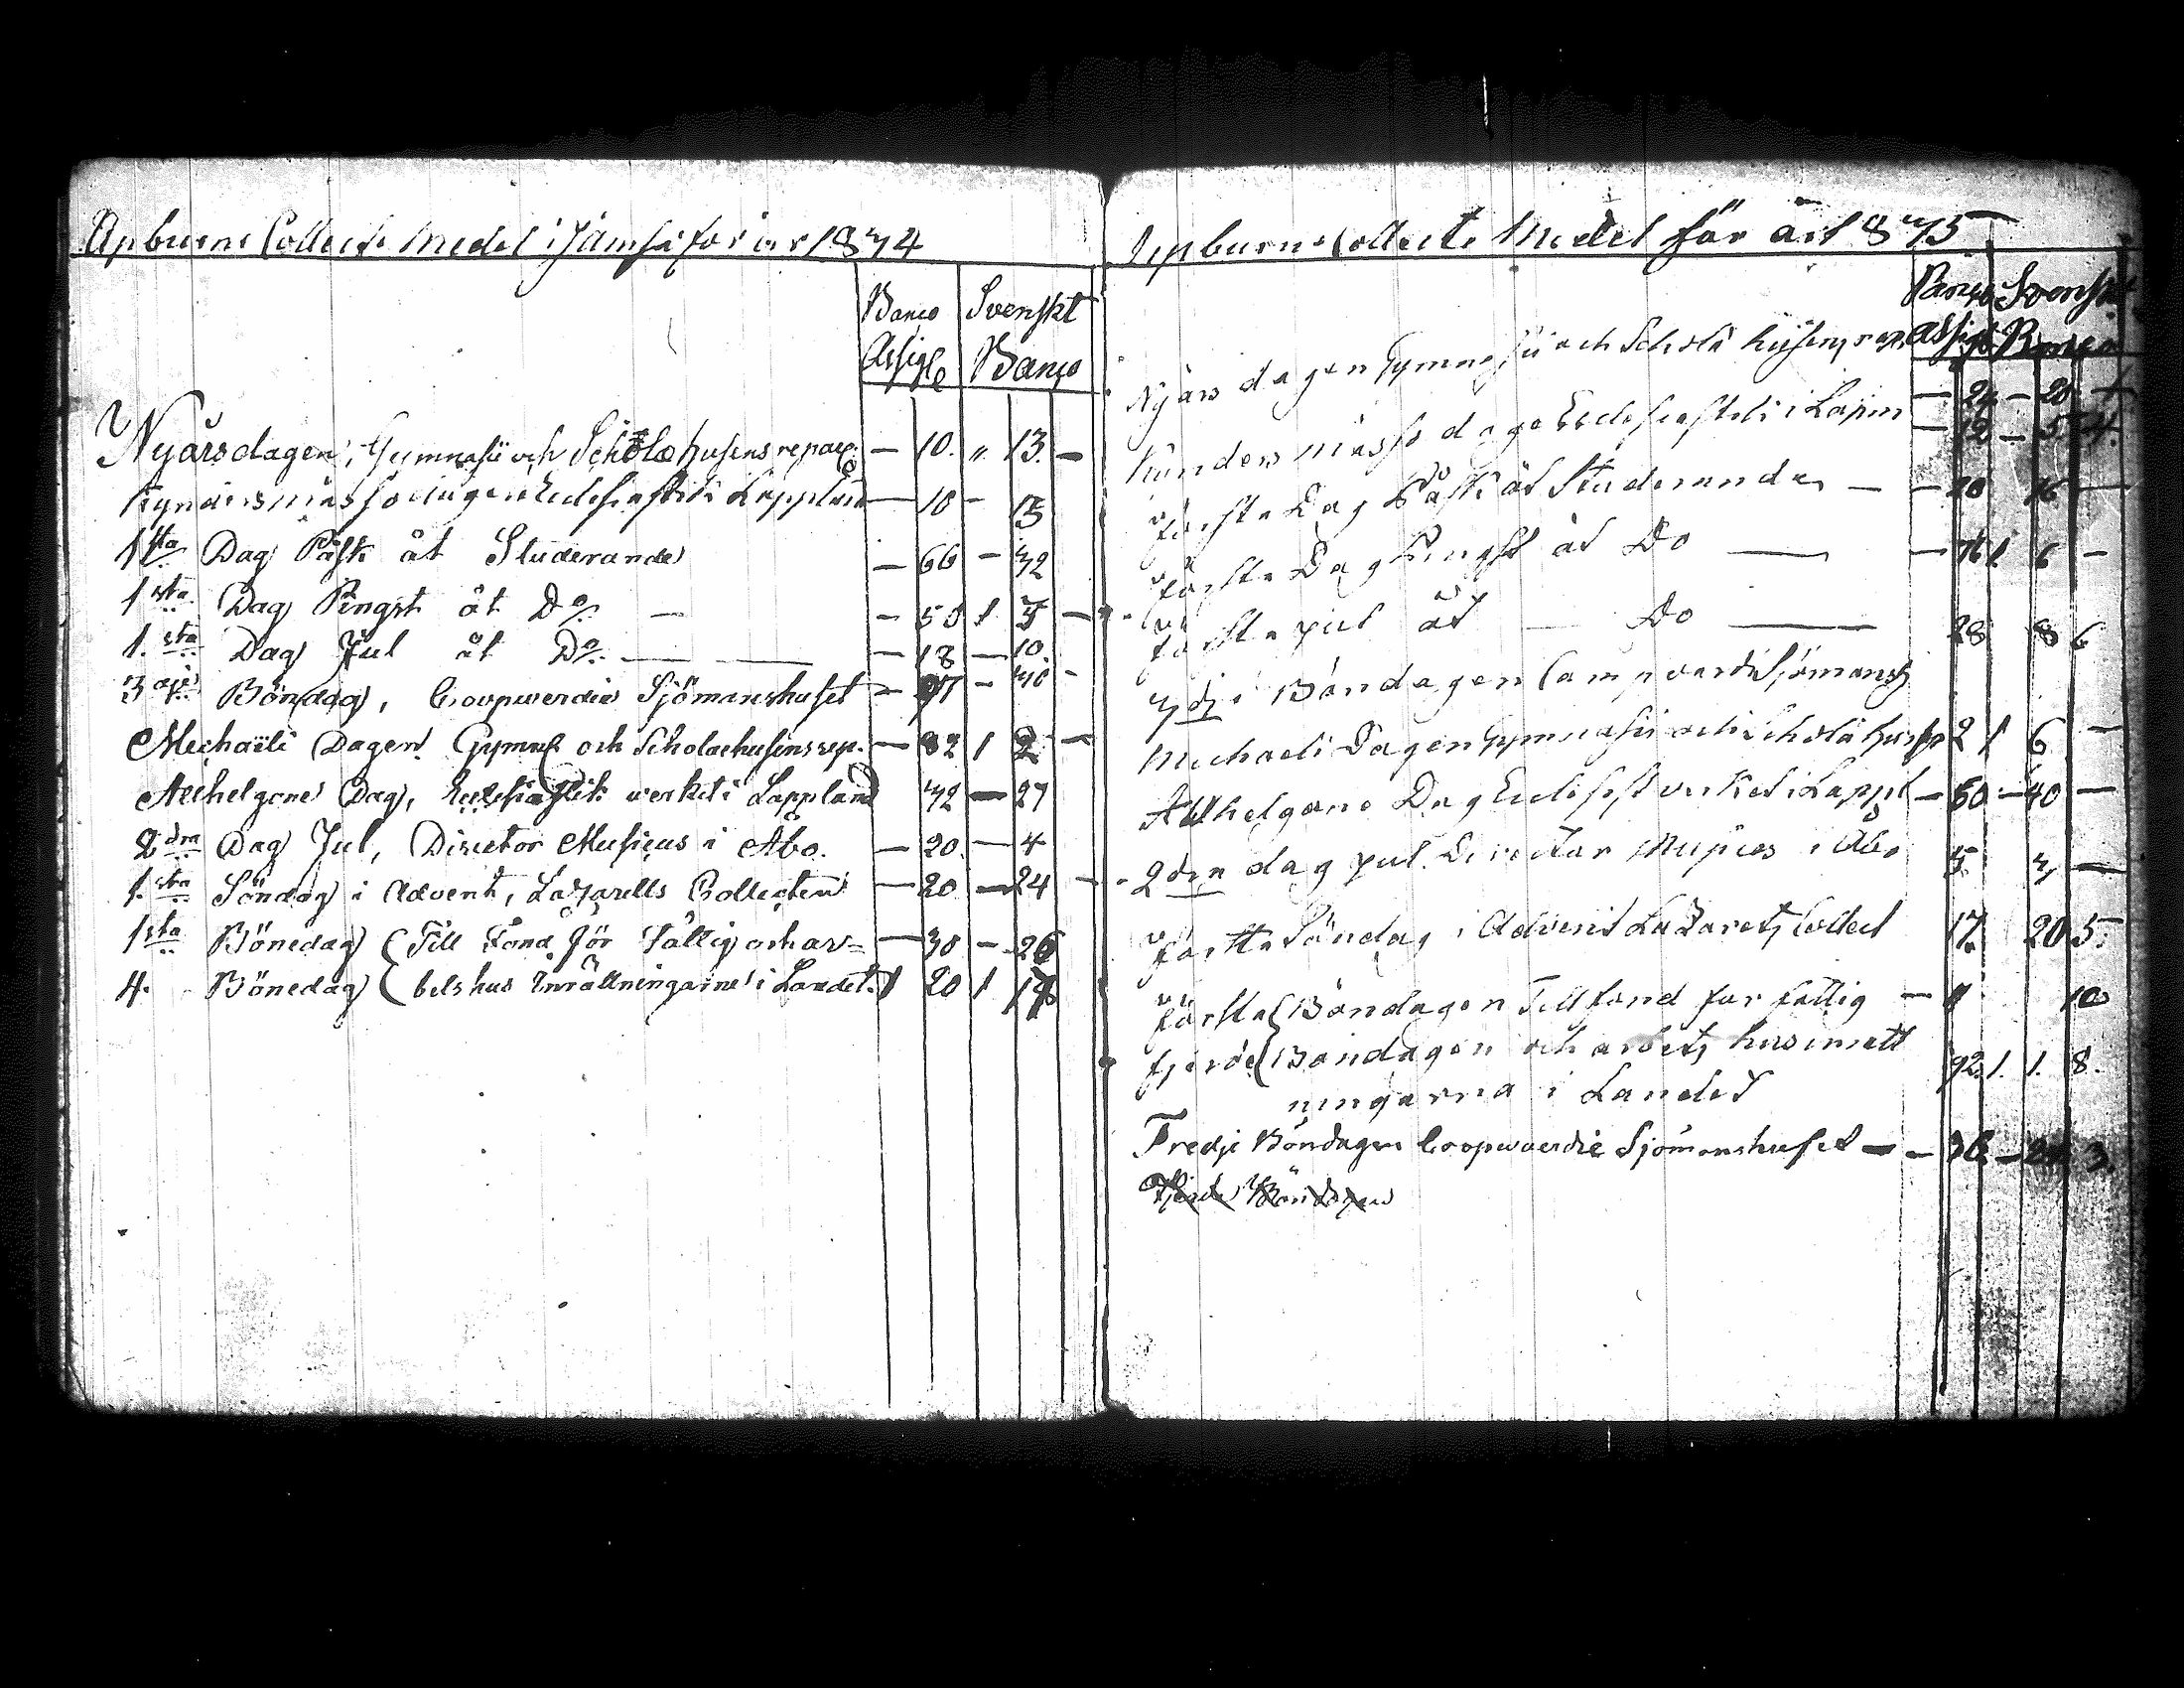 Upburne Collecte Medel i Jämsä för år 1834
Banco Svenskt
Assige Banco
Nyårsdagen, Gymnasii och Scholæ husens reparₒ — 10. „ 13. —
Kyndersmässodagen Ecclesiastiki Lappland — 10 — 15
1sta Dag Påsk åt Studerande — 66 — 32
1sta Dag Pingst åt Do — — 50 1 5 —
1.sta Dag Jul åt Do. — — — 18 — 10
3dje Böndag, Coopwerdie Sjömanshuset — 97 — 40 -
Michaëli Dagen Gymnas och Scholæhusens rep. — 82 1 2 —
Allhelgone Dag, Ecclesiastik werket i Lappland 72 — 27
2dra Dag Jul, Director Musicus i Åbo. — 20. — 4
1.sta Söndag i Advent, Lazaretts Collecten — 20 — 24 -
1sta Bönedag (Till Fond för Fattig och ar= — 30 — 26
4. Bönedag (betshus Inrättningarne i Landet. 1 20 1
Upburne Collecte Medel för år 1835
Banco Svenskt
Assige Banco
Nyårs dagen Gymnasii och Schola husens rep. — 24 — 20
Kynders mässo dage Ecclesiastik i Lapm — 12 — 5
förste Dag Påsk åt Studerande — — 20 16 —
förste Dag Pingst åt Do — — 76 1 6 —
förste jul åt — Do — 28 8 6
3dje Böndagen Campvardi Sjömansh
Michaeli Dagen Gymnasii och Schola husen 2 1 6 —
Allhelgone Dag Ecclesiast verket i Lappl — 60 — 40 —
2dra dag jul. Director Musicus i Åbo 5 3 —
förste Söndag i Advent Lazarets Collect 17 20 5.
förste (Böndagen Till fond för fattig — 10
fjerde (Böndagen och arbets hus inrätt 92. 1. 1. 8.
ningarna i Landet
Tredje Böndagen Coopwaerdie Sjömanshuset — — 36 — 24 3.
Fjerde Böndagen